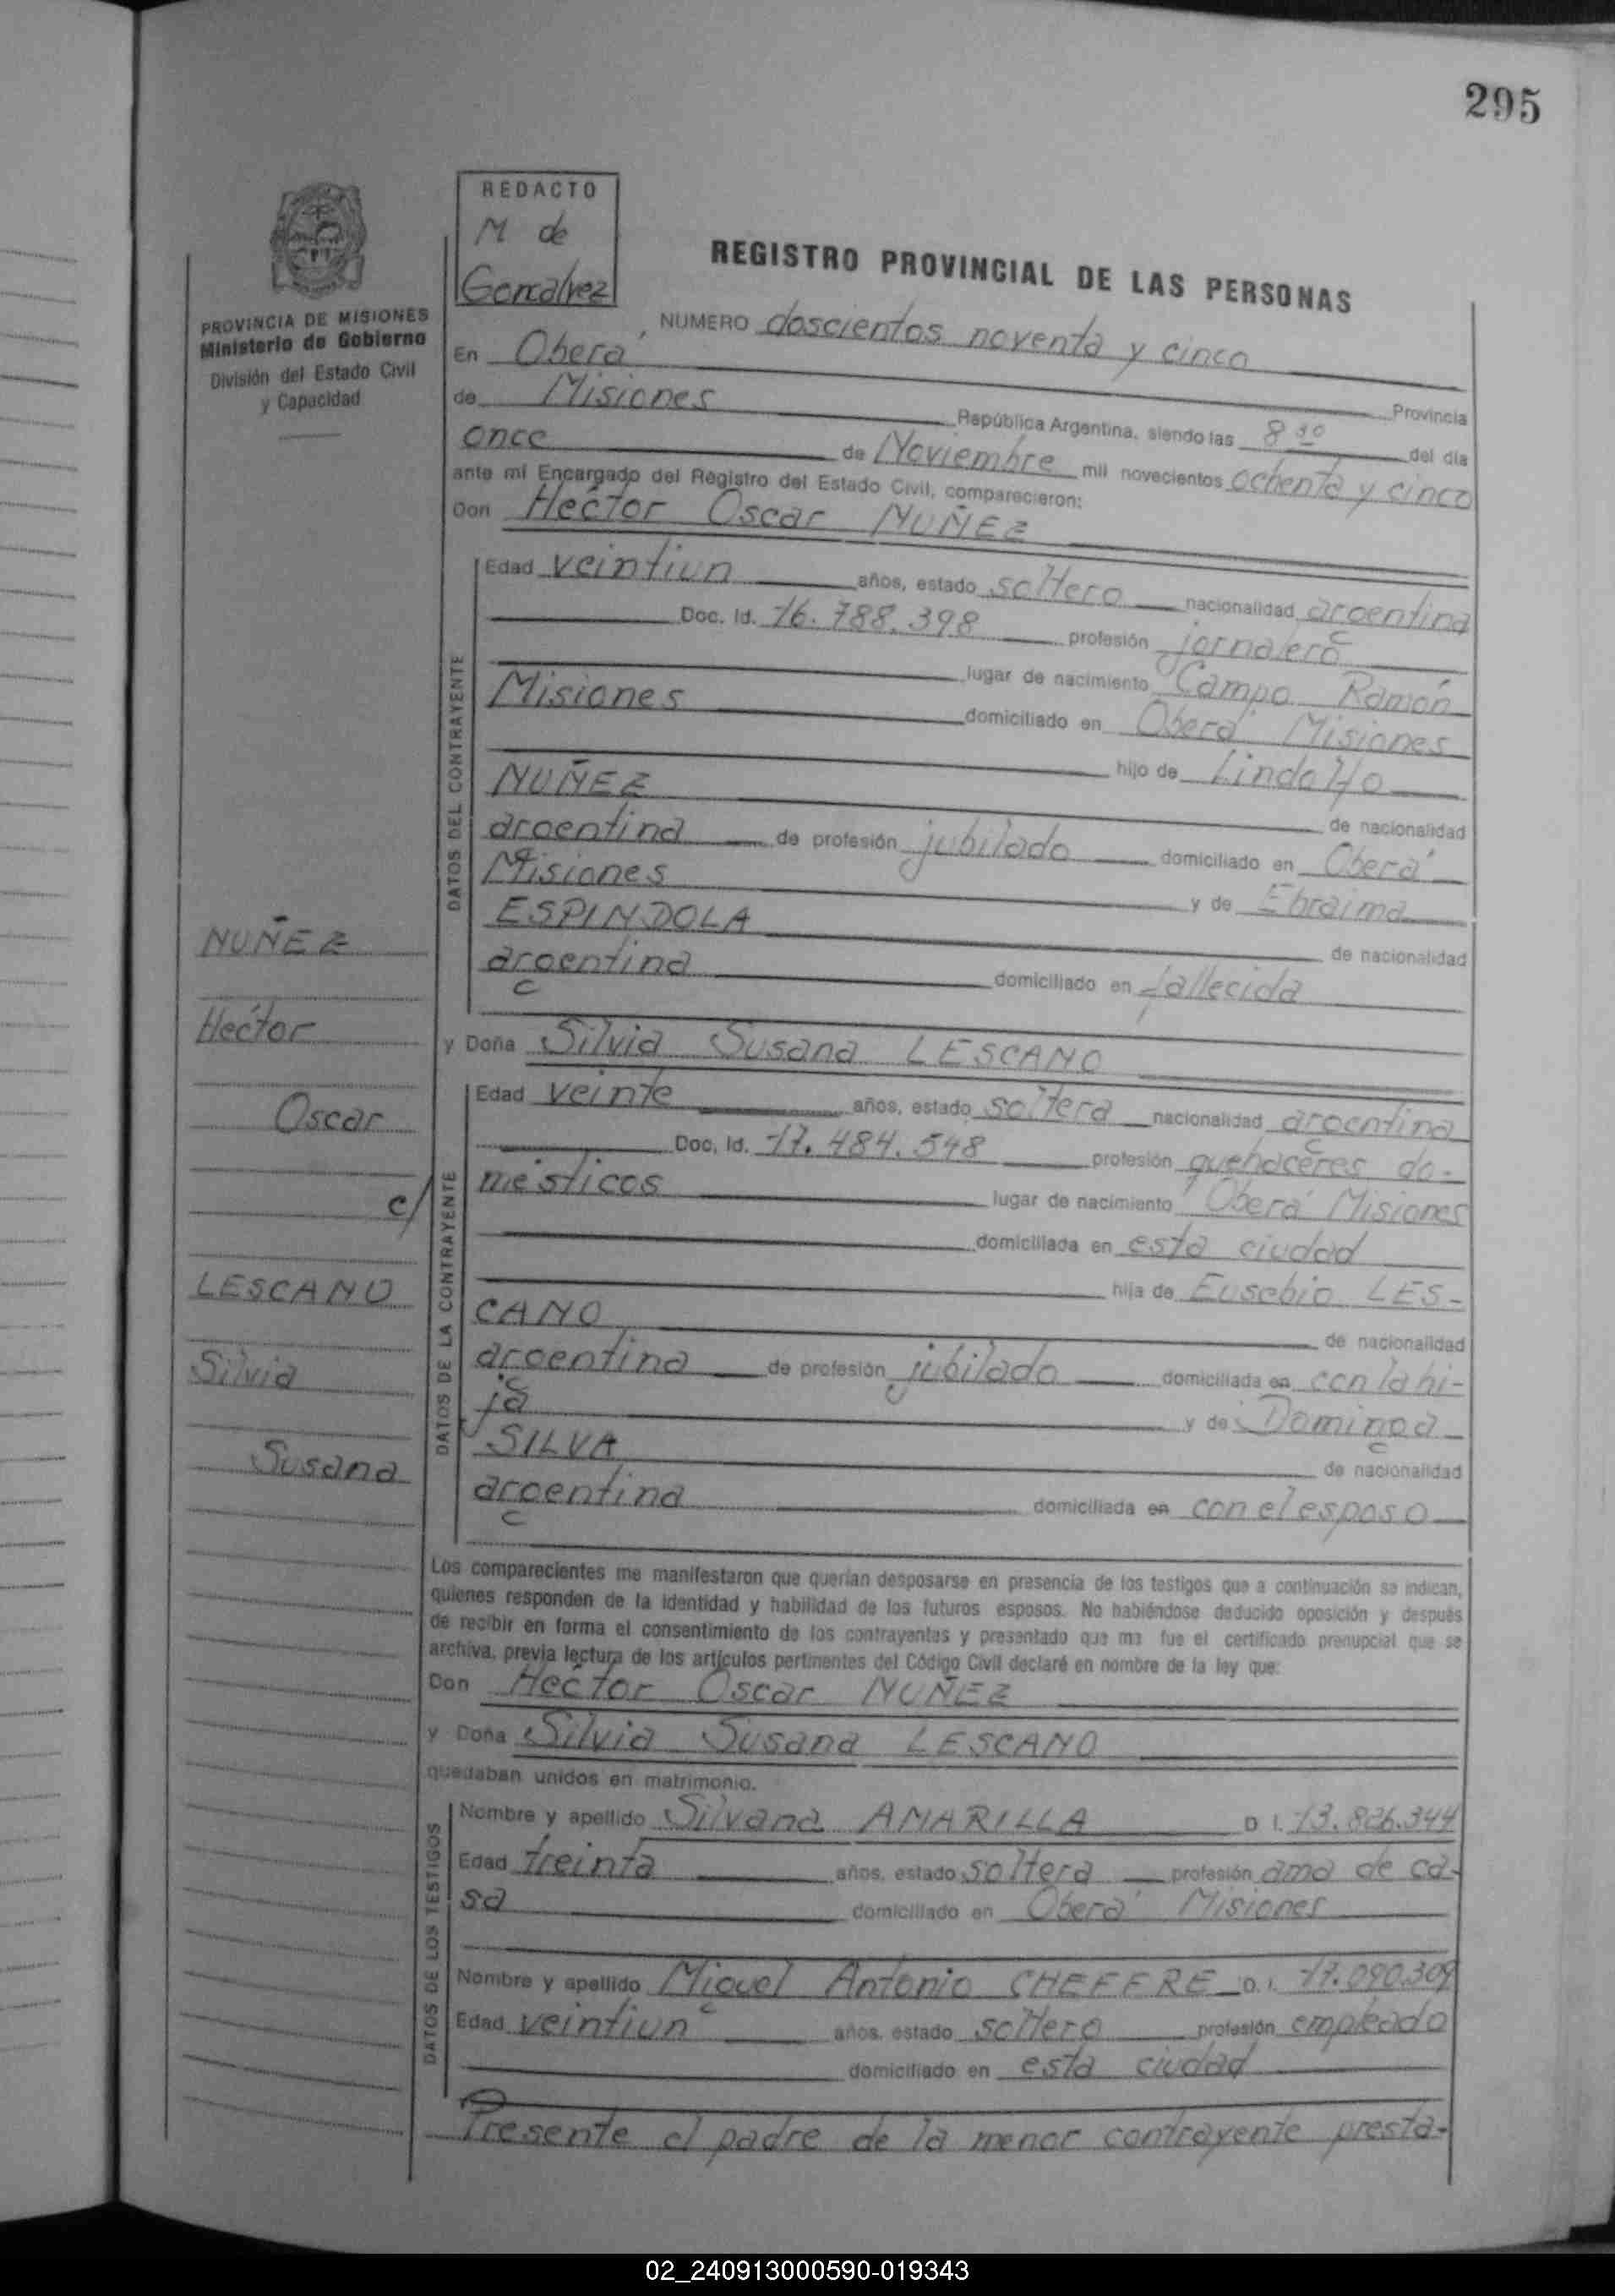 295
REDACTO
M de
Goncalvez
PROVINCIA DE MISIONES
Ministerio de Gobierno
División del Estado Civil
y Capacidad
REGISTRO PROVINCIAL DE LAS PERSONAS
NUMERO doscientos noventa y cinco
En Oberá Provincia
de Misiones República Argentina, siendo las 8 30 del día
once de Noviembre mil novecientos ochenta y cinco
ante mi Encargado del Registro del Estado Civil, comparecieron:
Don Héctor Oscar NUÑEZ
DATOS DEL CONTRAYENTE
Edad veintiun años, estado soltero nacionalidad argentina
Doc. Id. 16.788.398 profesión jornalero
lugar de nacimiento Campo Ramón
Misiones domiciliado en Oberá Misiones
hijo de Lindolfo
NUÑEZ de nacionalidad
argentina de profesión jubilado domiciliado en Oberá
Misiones y de Ebraima
ESPINDOLA de nacionalidad
argentina domiciliado en fallecida
y Doña Silvia Susana LESCANO
DATOS DE LA CONTRAYENTE
Edad veinte años, estado soltera nacionalidad argentina
Doc. Id. 17.484.548 profesión quehaceres do-
mésticos lugar de nacimiento Oberá Misiones
domiciliada en esta ciudad
hija de Eusebio LES-
CANO de nacionalidad
argentina de profesión jubilado domiciliada en con la hi-
ja y de Dominga
SILVA de nacionalidad
argentina domiciliada en con el esposo
NUÑEZ
Héctor
Oscar
c/
LESCANO
Silvia
Susana
Los comparecientes me manifestaron que querían desposarse en presencia de los testigos que a continuación se indican,
quienes responden de la identidad y habilidad de los futuros esposos. No habiéndose deducido oposición y después
de recibir en forma el consentimiento de los contrayentes y presentado que me fue el certificado prenupcial que se
archiva, previa lectura de los artículos pertinentes del Código Civil declaré en nombre de la ley que:
Don Héctor Oscar NUÑEZ
y Doña Silvia Susana LESCANO
quedaban unidos en matrimonio.
DATOS DE LOS TESTIGOS
Nombre y apellido Silvana AMARILLA D. I. 13.826.344
Edad treinta años, estado soltera profesión ama de ca-
sa domiciliado en Oberá Misiones
Nombre y apellido Miguel Antonio CHEFFRE D. I. 17.090.309
Edad veintiun años, estado soltero profesión empleado
domiciliado en esta ciudad
Presente el padre de la menor contrayente presta-
02_240913000590-019343